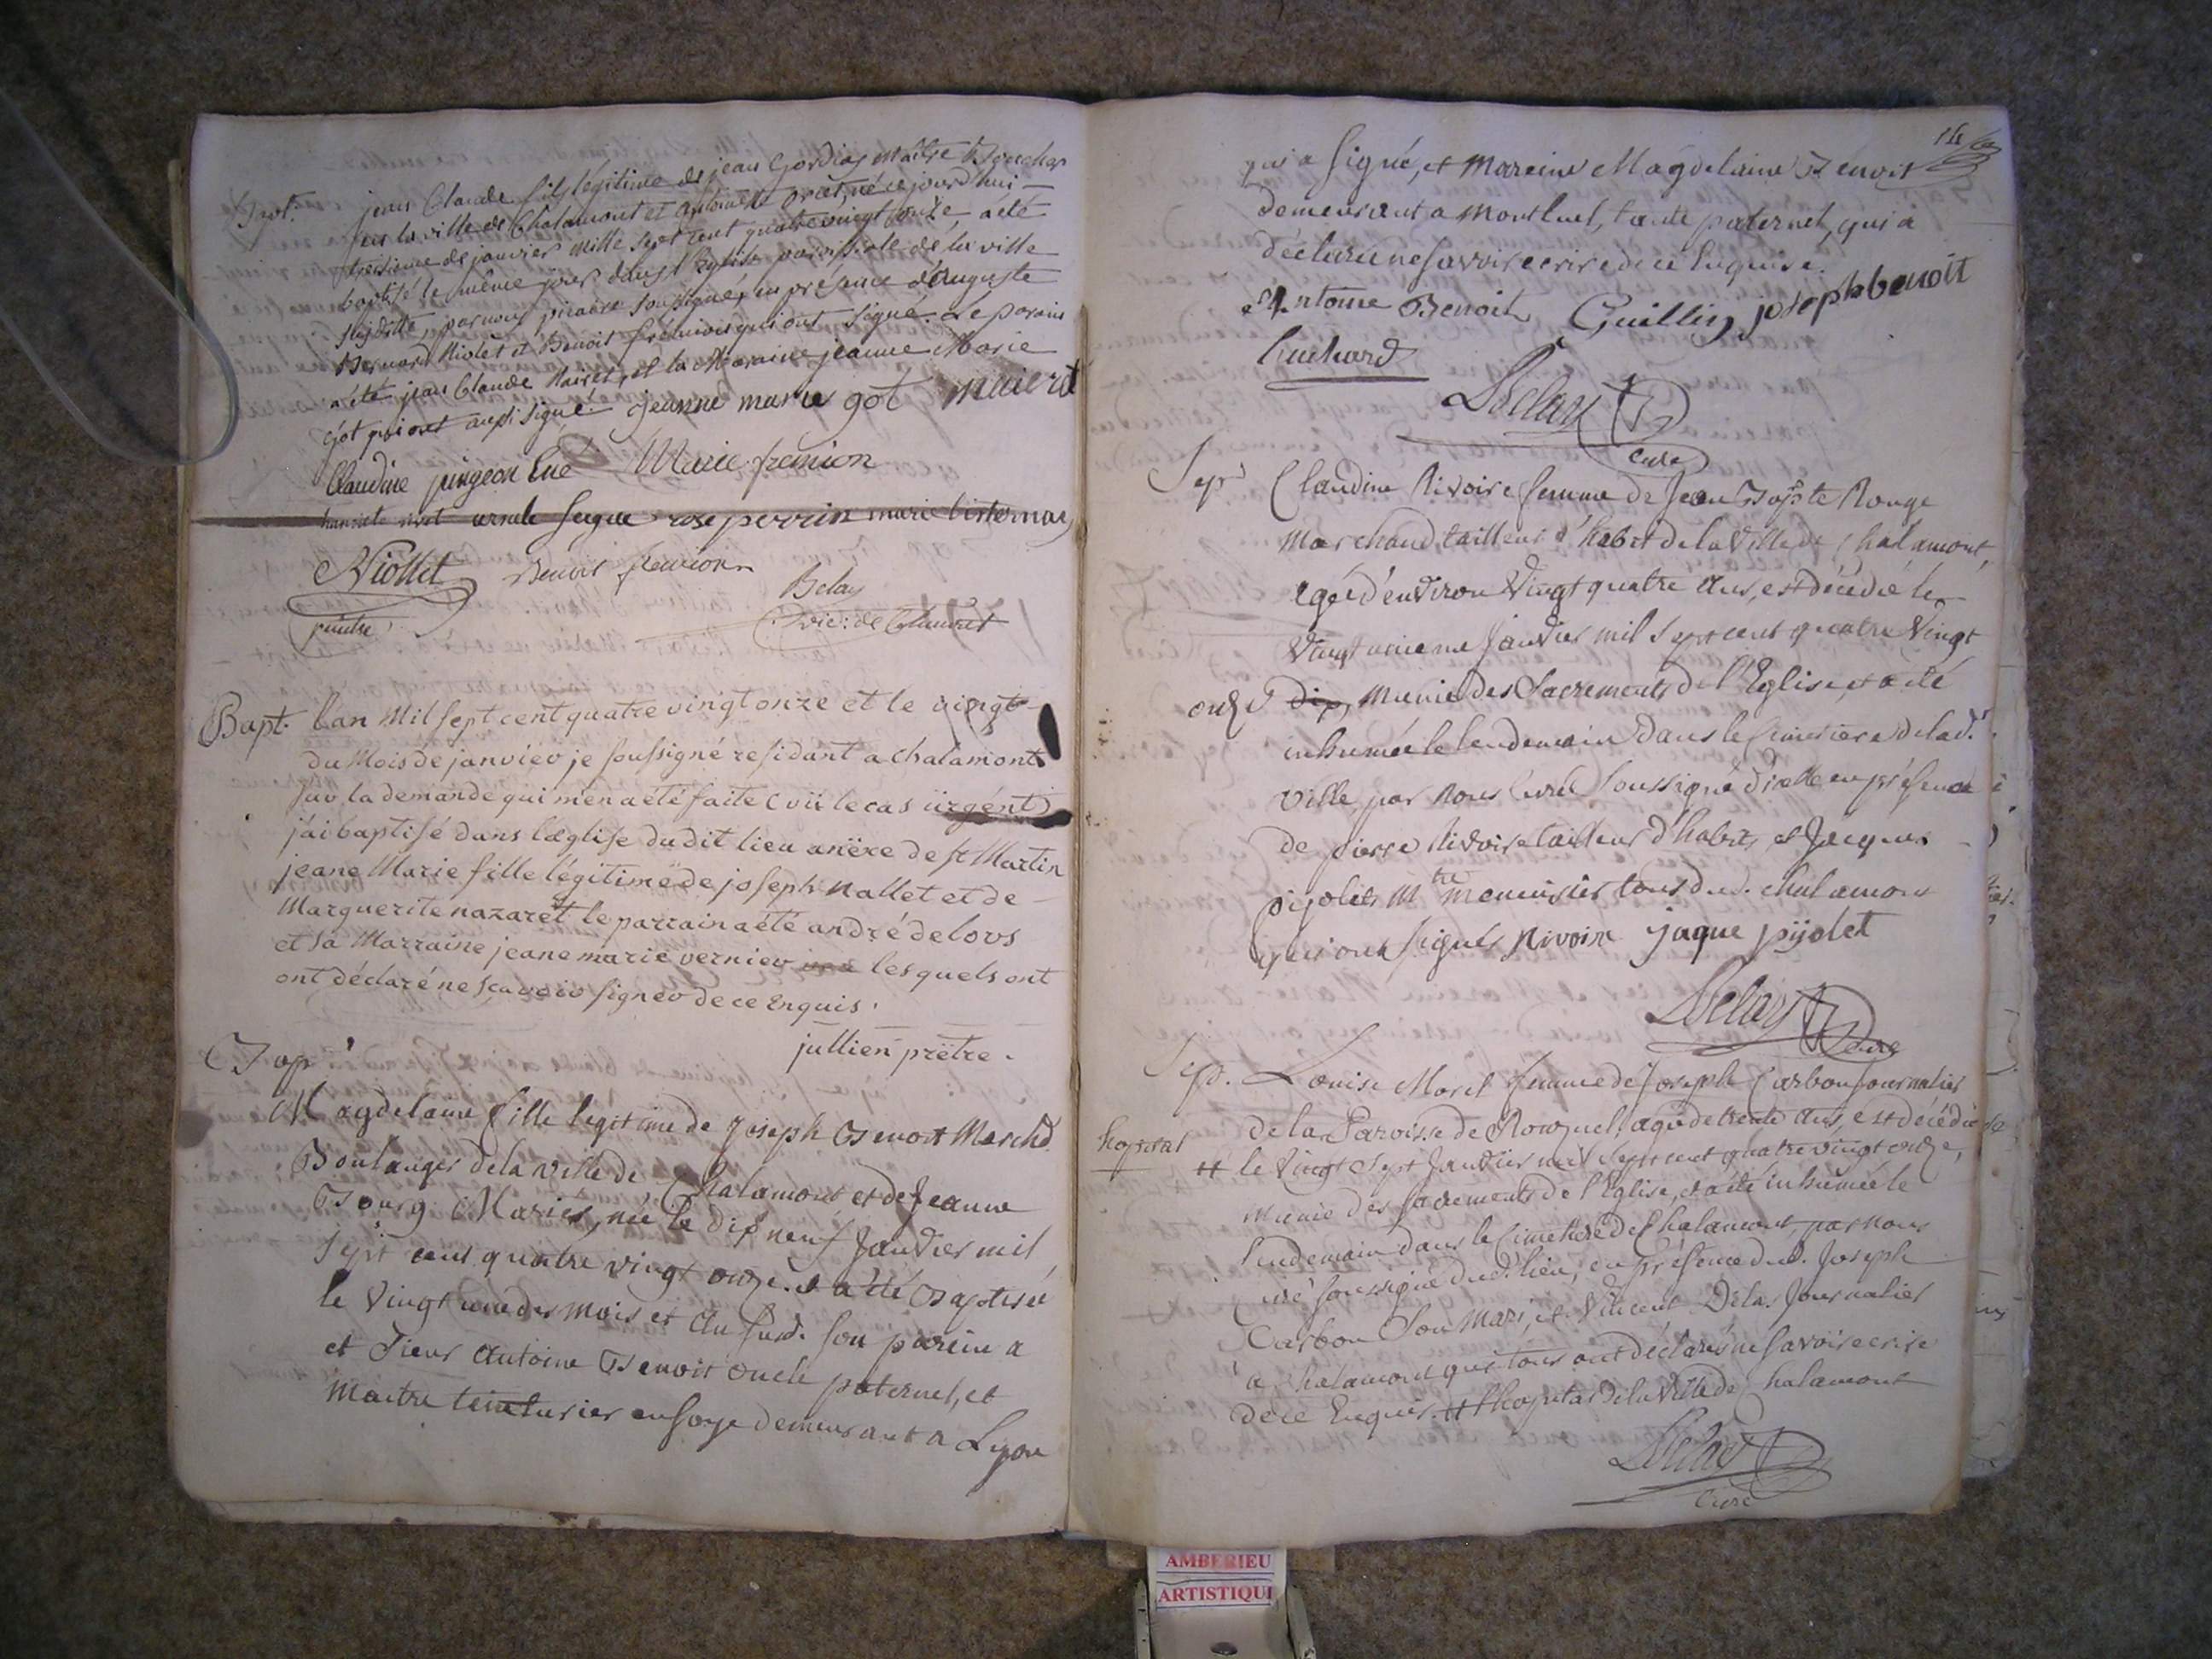 Bapt. jean Claude fils légitime de jean Gordiag maître Boucher
en la ville de Chalamont et antoinette oret, né ce jourd'hui
treizieme de janvier mille sept cent quatre vingt onze, a été
baptisé le même jour dans l'Eglise paroissiale de la ville
susditte, par nous vicaire soussigné, en présence d'Auguste
Bernard Niolet et Benoit frémion qui ont signé. Le parain
a été jean Claude Naires, et la Maraine jeanne Marie
got qui ont aussi signé. Jeanne marie got
Claudine pingeon Marie fremion
ursule rose perrin marie
Niollet Benoit fremion
Belay
vic: de Chalamont
Bapt. l'an Mil sept cent quatre vingt onze et le vingt
du Mois de janvier je soussigné residant a chalamont
sur la demande qui m'en a été faite (vü le cas ürgént)
j'ai baptisé dans l'æglise du dit lieu anëxe de st Martin
jeane Marie fille légitime de joseph Nallet et de
Marguerite nazaret le parrain a été andré delors
et sa Marraine jeane marie vernier lesquels ont
ont déclaré ne sçavoir signer de ce Enquis.
jullien prêtre.
Bap
Magdelaine fille legitime de Joseph Benoit Marchd
Boulanger de la ville de Chalamont et de Jeanne
Bourg Mariés, née le dix neuf Janvier mil
sept cent quatre vingt onze. et a été Baptisée
le Vingt une des mois et an susd. son parein a
et Sieur Antoine Benoit oncle paternel, et
maitre teinturier en soye demeurant a Lyon
qui a signé, et mareine Magdelaine Benoit
demeurant a Montluel, tante paternel, qui a
déclaré ne savoir ecrire de ce Enquise.
Antoine Benoit Guillin joseph benoit
Luchard
Belay
curé
Sep Claudine Rivoire femme de Jean Bapte Rouge
Marchand tailleur d'habit de la Ville de Chalamont,
agée d'environ Vingt quatre ans, est décédée le
Vingt unieme Janvier mil sept cent quatre Vingt
onze dix, munie des Sacrements de l'Eglise, et a été
inhumée le lendemain dans le Cimetiere de lad.
ville, par nous Curé soussigné d'icelle en présence
de pierre Rivoire tailleur d'habits, et Jacques
pijolet Mtre menuisier tous dud. chalamont
qui ont signés Rivoire jaque pijolet
Belay
curé
Sep. Louise Moret femme de Joseph Carbon Journalier
de la Paroisse de agée de trente ans, est décédée
hopital # le Vingt sept Janvier mil sept cent quatre vingt onze,
munie des sacrements de l'Eglise, et a été inhumée le
lendemain dans le Cimetiere de Chalamont, par nous
curé soussigné dud. lieu, en présence dud. Joseph
Carbon son mari, et Vincent Delas Journalier
a Chalamont qui tous ont déclarés ne savoir ecrire
de ce Enquis. # l'hopital de la Ville de Chalamont
Belay
Curé
AMBERIEU
ARTISTIQU